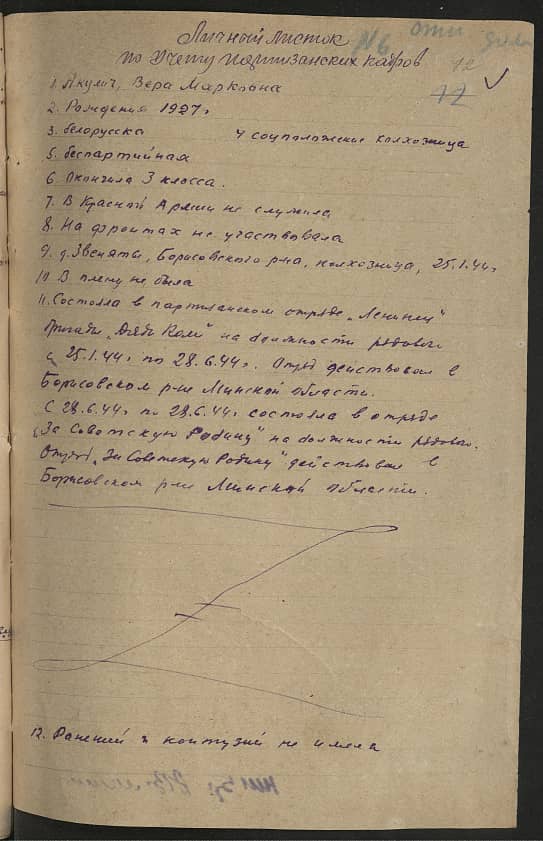 Личный листок
по учету партизанских кадров
№6
12
1. Акулич, Вера Марковна
2. Рождения 1927г
3. белорусска 4 соцположение колхозница
5. беспартийная
6. Окончила 3 класса.
7. В Красной Армии не служила
8. На фронтах не участвовала
9. д. Звеняты, Борисовского р-на, колхозница, 25.1.44г
10 В плену не была
11. Состояла в партизанском отряде „Ленинец"
бригады „Дяди Коли" на должности рядового
с 25.1.44г по 28.6.44г. Отряд действовал в
Борисовском р-не Минской области.
С 28.6.44г по 28.6.44г состояла в отряде
„За Советскую Родину" на должности рядового.
Отряд „За Советскую Родину" действовал в
Борисовском р-не Минской области.
12. Ранений и контузий не имела